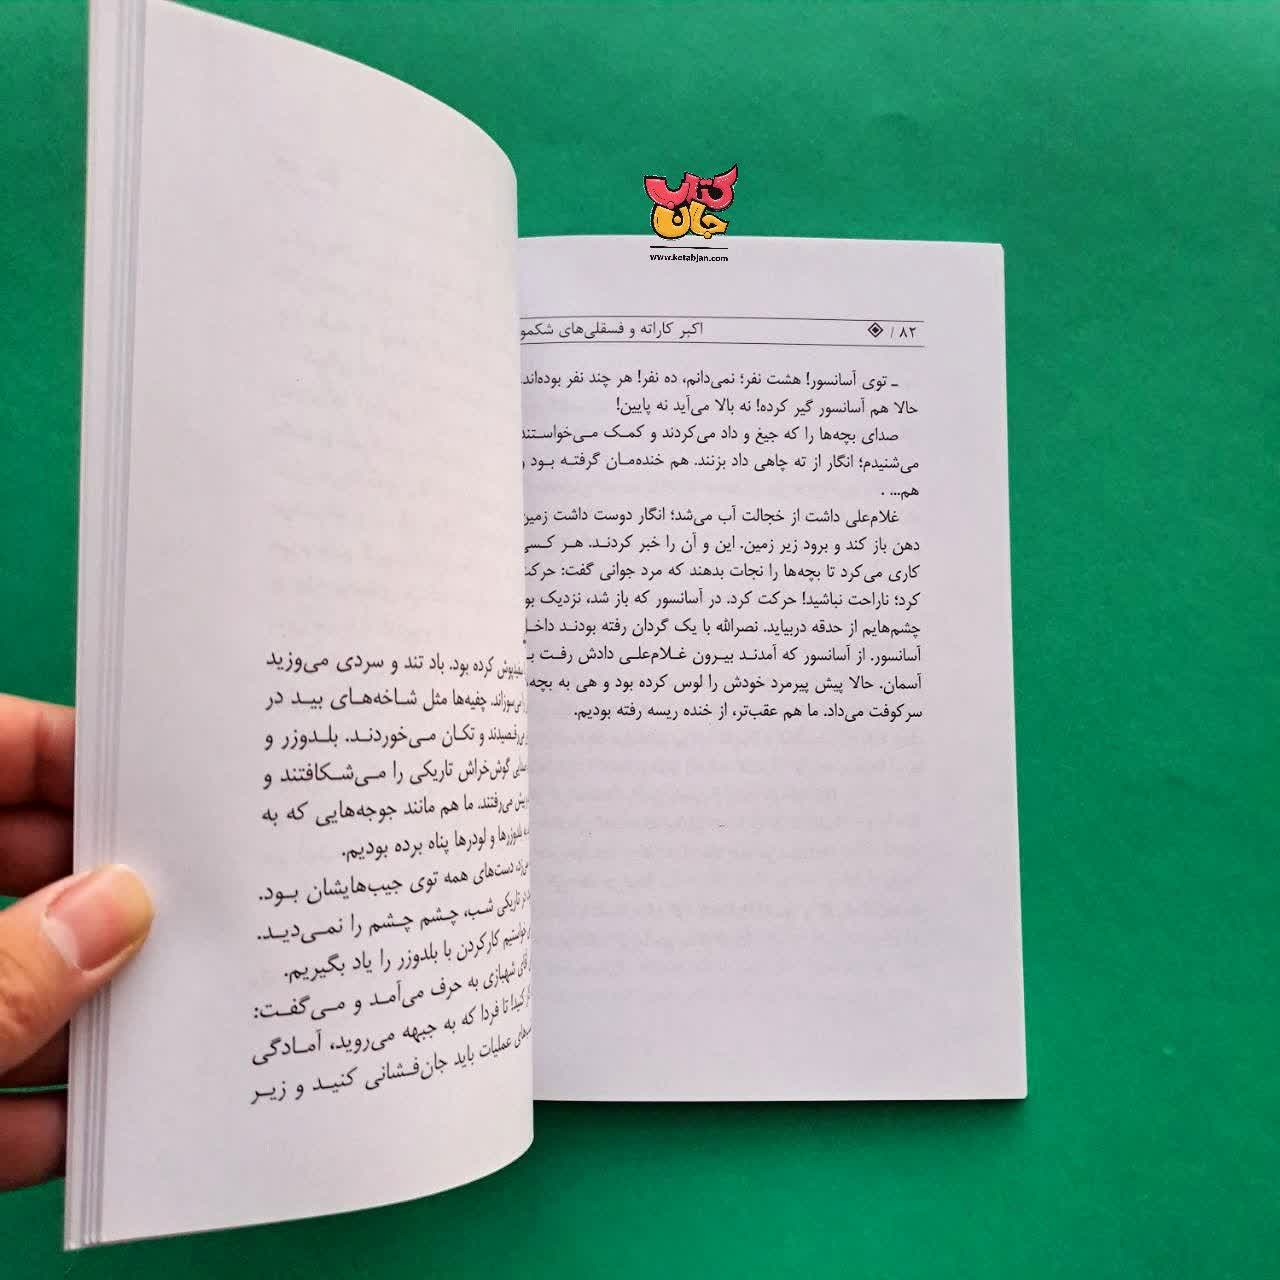 کتاب
جان
www.ketabjan.com
۸۲ / اکبر کاراته و فسقلی‌های شکمو
ـ توی آسانسور! هشت نفر؛ نمی‌دانم، ده نفر! هر چند نفر بوده‌اند
حالا هم آسانسور گیر کرده! نه بالا می‌آید نه پایین!
صدای بچه‌ها را که جیغ و داد می‌کردند و کمک می‌خواستند
می‌شنیدم؛ انگار از ته چاهی داد بزنند. هم خنده‌مان گرفته بود و
هم... .
غلام‌علی داشت از خجالت آب می‌شد؛ انگار دوست داشت زمین
دهن باز کند و برود زیر زمین. این و آن را خبر کردند. هر کسی
کاری می‌کرد تا بچه‌ها را نجات بدهند که مرد جوانی گفت: حرکت
کرد؛ ناراحت نباشید! حرکت کرد. در آسانسور که باز شد، نزدیک بو
چشم‌هایم از حدقه دربیاید. نصرالله با یک گردان رفته بودند داخل
آسانسور. از آسانسور که آمدند بیرون غلام‌علی دادش رفت
آسمان. حالا پیش پیرمرد خودش را لوس کرده بود و هی به بچه‌
سرکوفت می‌داد. ما هم عقب‌تر، از خنده ریسه رفته بودیم.
سفیدپوش کرده بود. باد تند و سردی می‌وزید
می‌سوزاند. چفیه‌ها مثل شاخه‌های بید در
می‌رقصیدند و تکان می‌خوردند. بلدوزر و
گوش‌خراش تاریکی را می‌شکافتند و
می‌رفتند. ما هم مانند جوجه‌هایی که به
بلدوزرها و لودرها پناه برده بودیم.
دست‌های همه توی جیب‌هایشان بود.
تاریکی شب، چشم چشم را نمی‌دید.
کارکردن با بلدوزر را یاد بگیریم.
شهبازی به حرف می‌آمد و می‌گفت:
تا فردا که به جبهه می‌روید، آمادگی
عملیات باید جان‌فشانی کنید و زیر